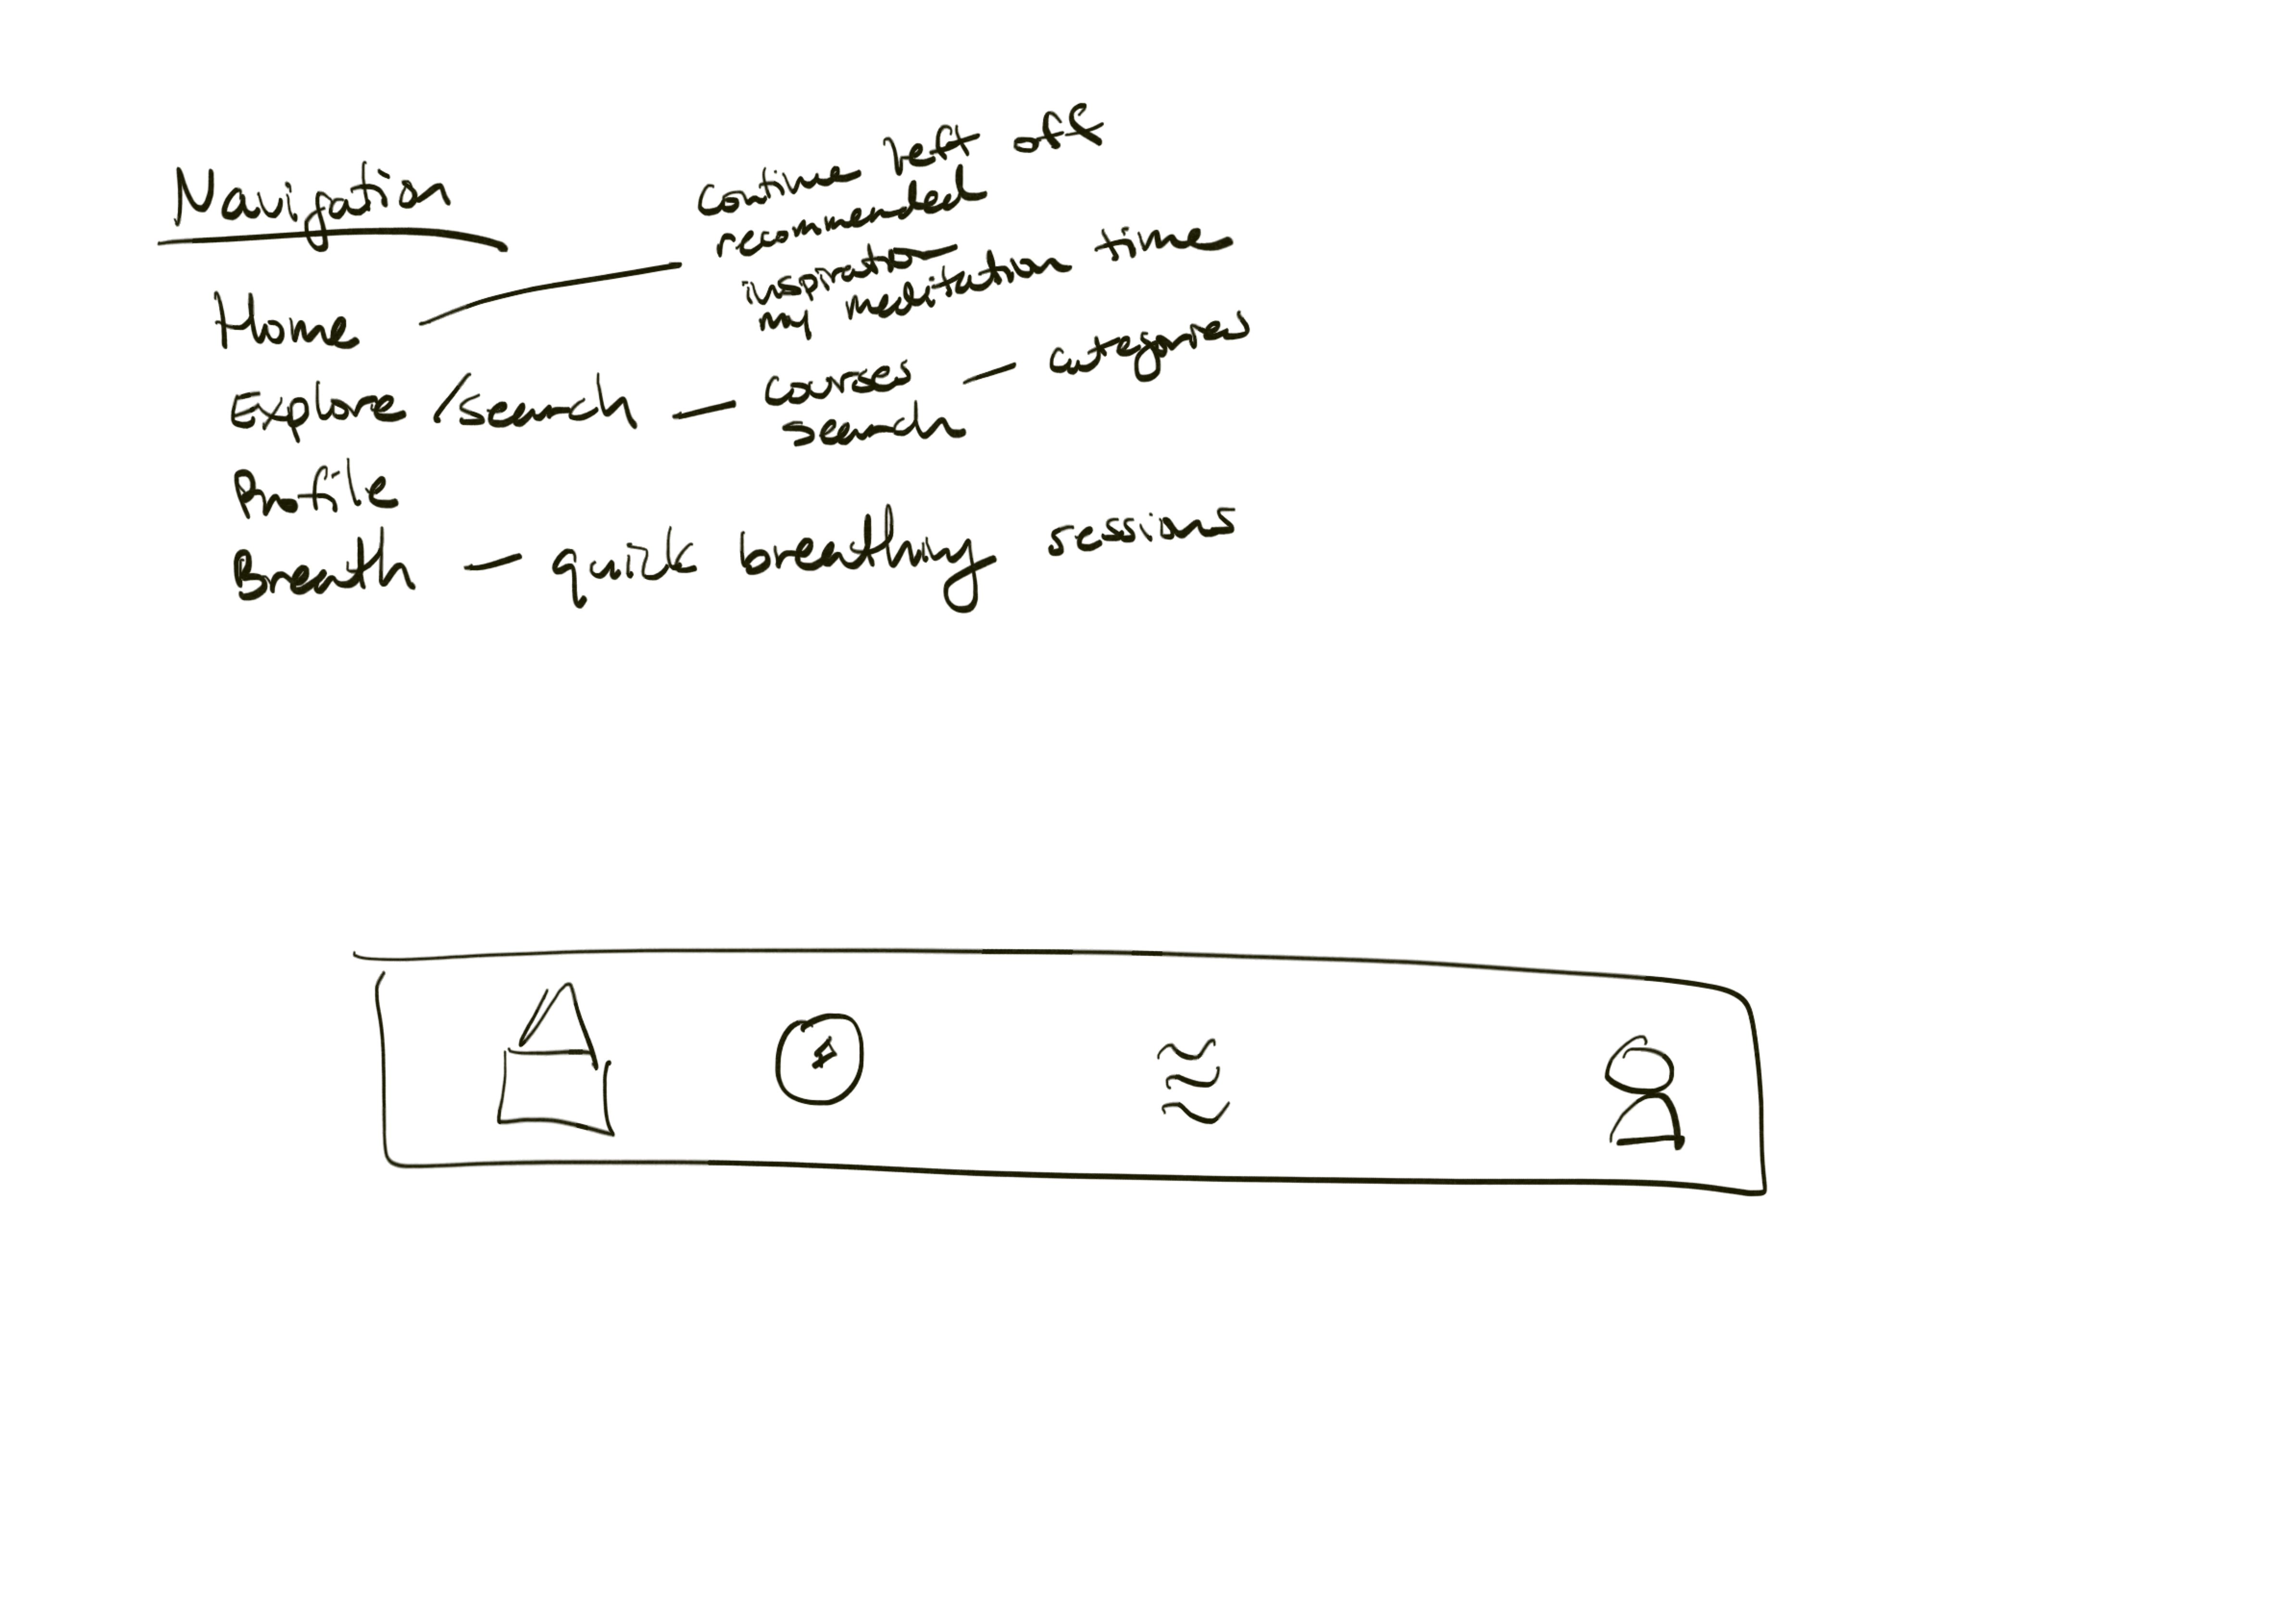 Navigation
Home — continue left off
recommended
inspiration
my meditation time
Explore /search — courses — categories
search
Profile
Breath — quick breathing sessions